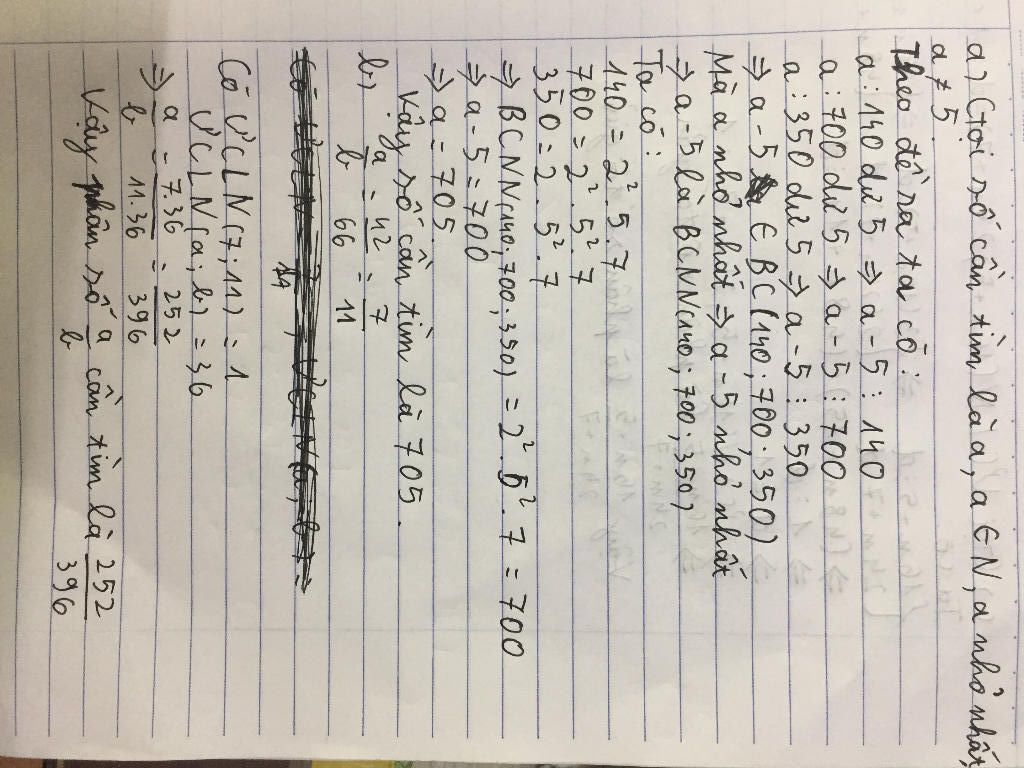 a) Gọi số cần tìm là a, a ∈ N, a nhỏ nhất,
a ≠ 5.
Theo đề ra ta có:
a : 140 dư 5 => a - 5 ⋮ 140
a : 700 dư 5 => a - 5 ⋮ 700
a : 350 dư 5 => a - 5 ⋮ 350
=> a - 5 ∈ BC (140; 700; 350)
Mà a nhỏ nhất => a - 5 nhỏ nhất
=> a - 5 là BCNN (140; 700; 350)
Ta có:
140 = 2². 5. 7
700 = 2². 5². 7
350 = 2. 5². 7
=> BCNN (140; 700; 350) = 2². 5². 7 = 700
=> a - 5 = 700
=> a = 705.
Vậy số cần tìm là 705.
b) a/b = 42/66 = 7/11
Có ƯCLN (7; 11) = 1
ƯCLN (a; b) = 36
=> a/b = 7.36/11.36 = 252/396
Vậy phân số a/b cần tìm là 252/396